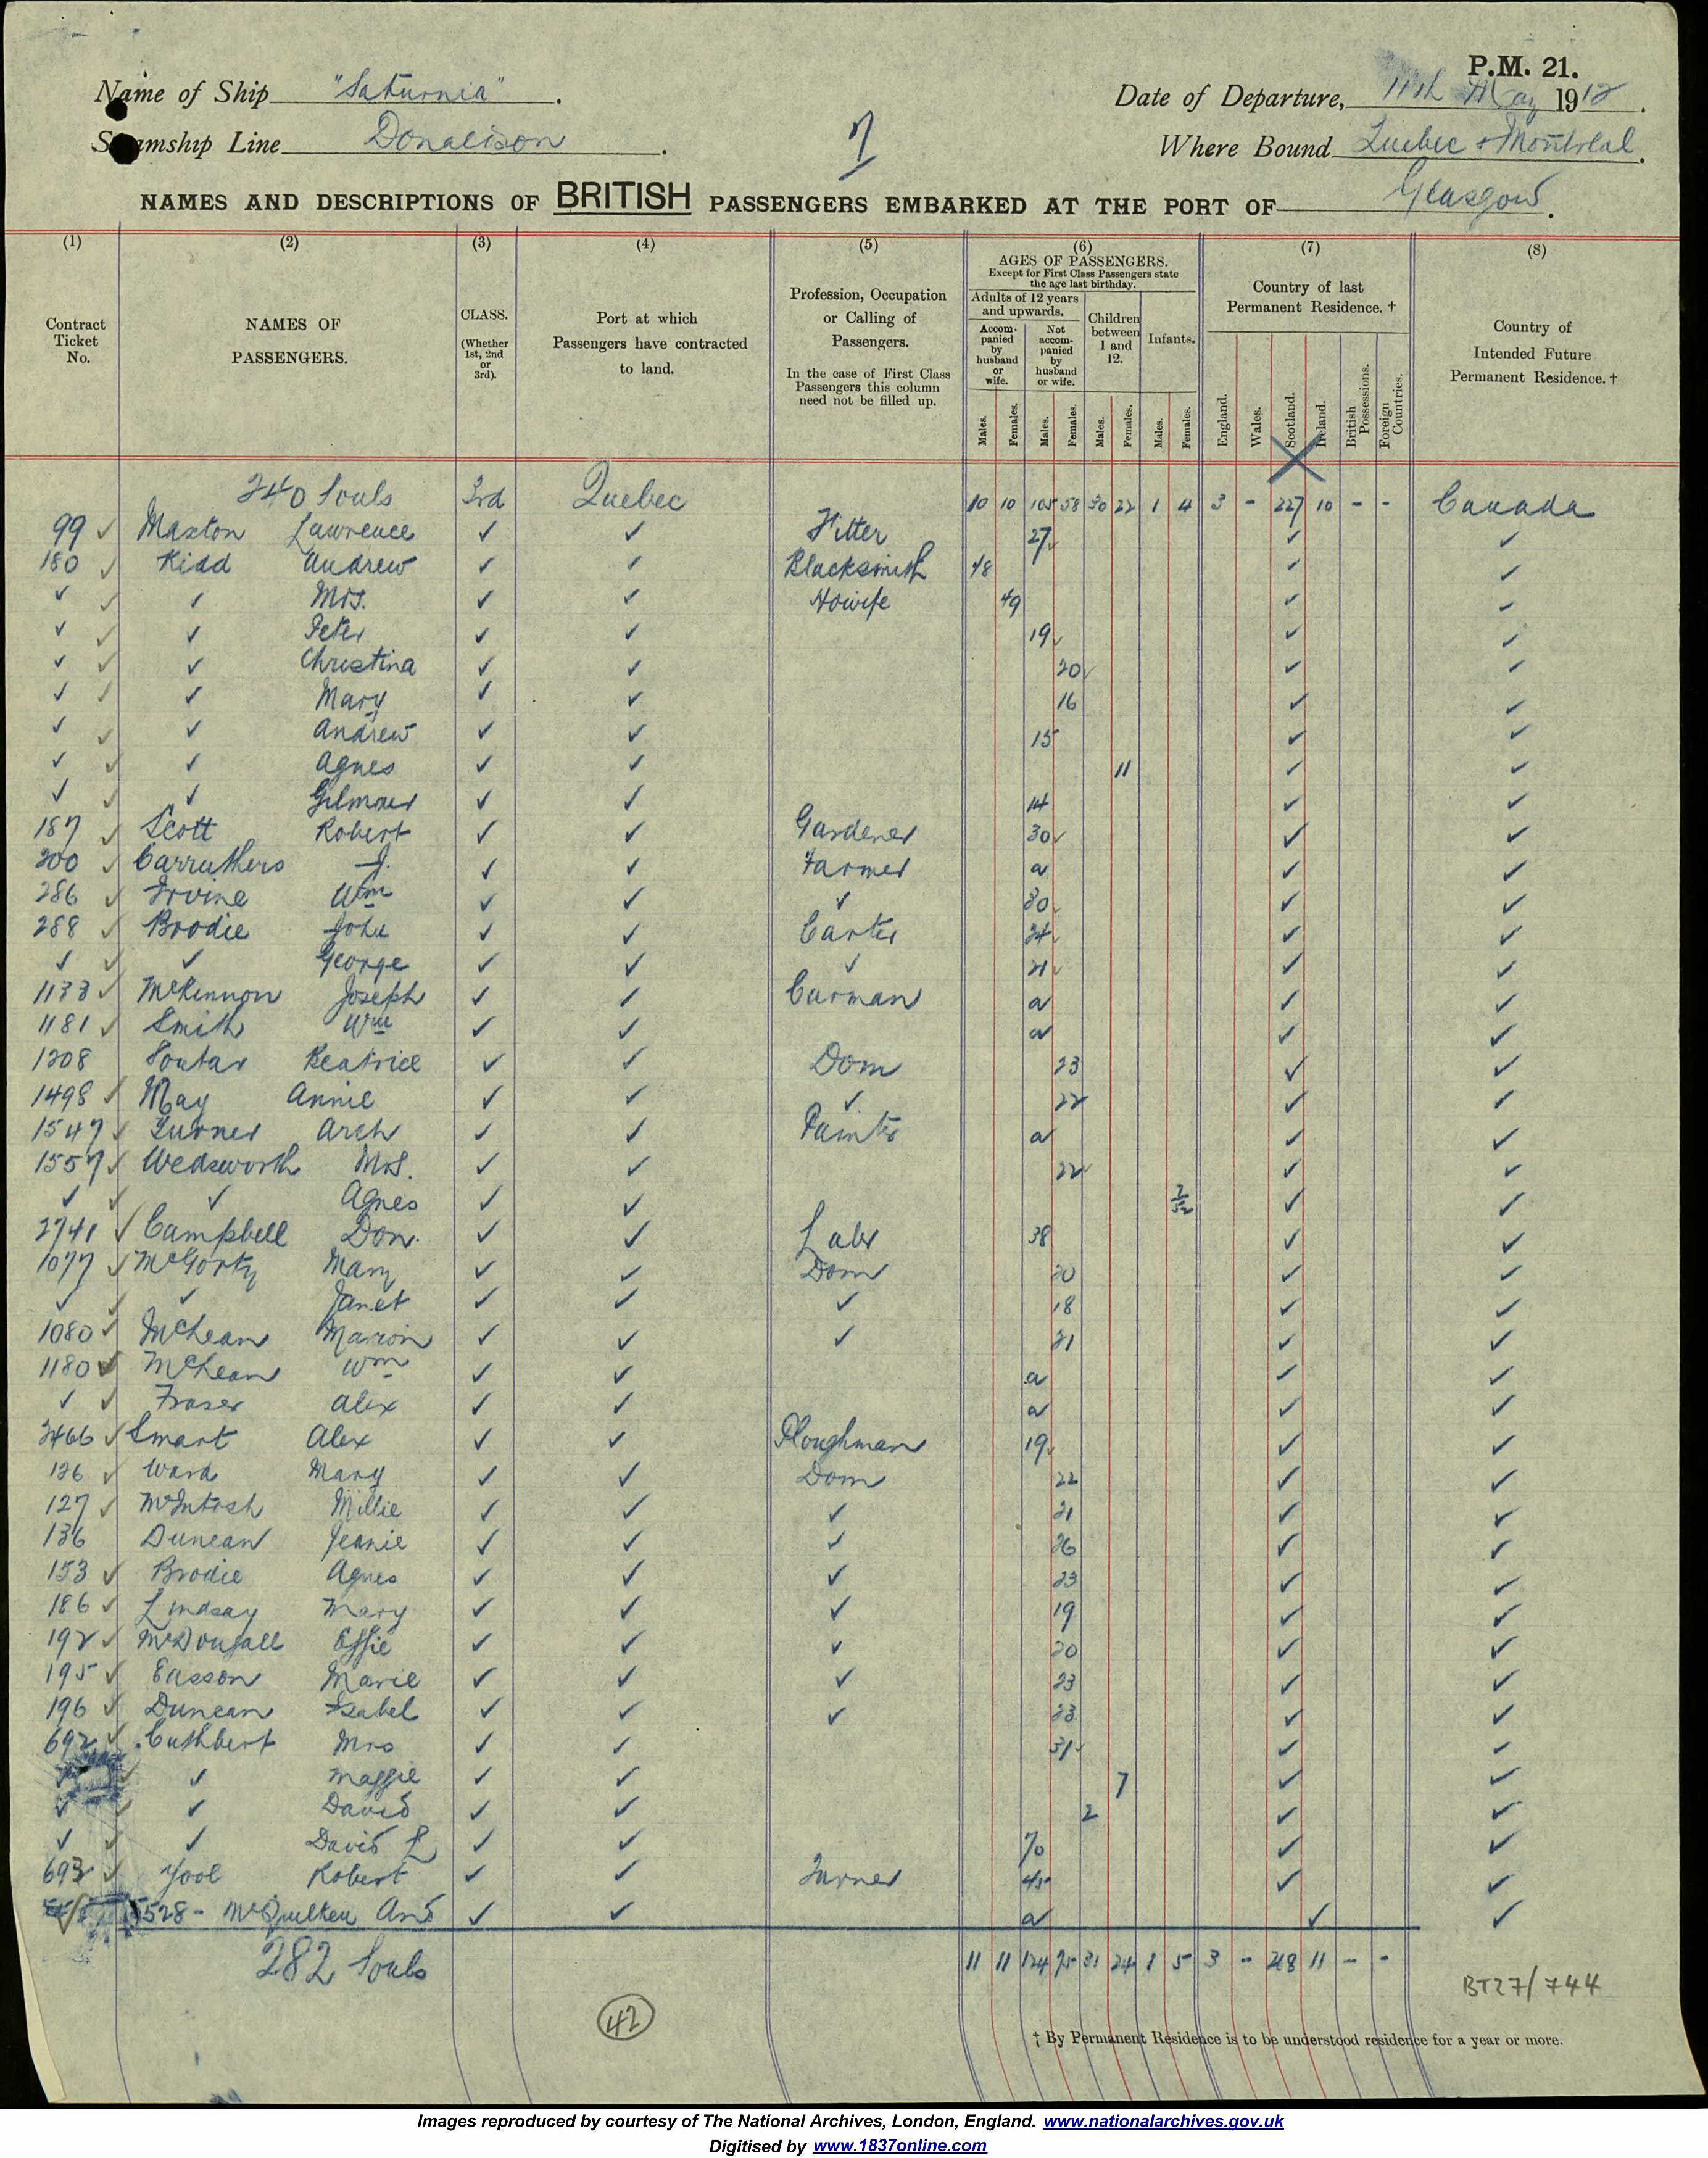 P.M. 21.
Name of Ship "Saturnia".
Date of Departure, 11th May 1912.
Steamship Line Donaldson.
7
Where Bound Quebec + Montreal.
NAMES AND DESCRIPTIONS OF BRITISH PASSENGERS EMBARKED AT THE PORT OF Glasgow.
(1) (2) (3) (4) (5) (6) (7) (8)
Contract Ticket No.
NAMES OF PASSENGERS.
CLASS. (Whether 1st, 2nd or 3rd).
Port at which Passengers have contracted to land.
Profession, Occupation or Calling of Passengers.
In the case of First Class Passengers this column need not be filled up.
AGES OF PASSENGERS.
Except for First Class Passengers state the age last birthday.
Adults of 12 years and upwards.
Accompanied by husband or wife.
Not accompanied by husband or wife.
Children between 1 and 12.
Infants.
Males. Females. Males. Females. Males. Females. Males. Females.
Country of last Permanent Residence. †
England. Wales. Scotland. Ireland. British Possessions. Foreign Countries.
Country of Intended Future Permanent Residence. †
240 Souls 3rd Quebec 10 10 105 58 30 22 1 4 3 - 227 10 - - Canada
99 ✓ Maxton Lawrence ✓ ✓ Fitter 27 ✓ ✓
180 ✓ Kidd Andrew ✓ ✓ Blacksmith 48 ✓ ✓
✓ ✓ ✓ Mrs. ✓ ✓ Hswife 49 ✓ ✓
✓ ✓ ✓ Peter ✓ ✓ 19 ✓ ✓
✓ ✓ ✓ Christina ✓ ✓ 20 ✓ ✓
✓ ✓ ✓ Mary ✓ ✓ 16 ✓ ✓
✓ ✓ ✓ Andrew ✓ ✓ 15 ✓ ✓
✓ ✓ ✓ Agnes ✓ ✓ 11 ✓ ✓
✓ ✓ ✓ Gilmour ✓ ✓ 14 ✓ ✓
187 ✓ Scott Robert ✓ ✓ Gardener 30 ✓ ✓
200 ✓ Carruthers J. ✓ ✓ Farmer a ✓ ✓
286 ✓ Irvine Wm ✓ ✓ ✓ 30 ✓ ✓
288 ✓ Brodie John ✓ ✓ Carter 24 ✓ ✓
✓ ✓ ✓ George ✓ ✓ ✓ 21 ✓ ✓
1133 ✓ McKinnon Joseph ✓ ✓ Carman a ✓ ✓
1181 ✓ Smith Wm ✓ ✓ a ✓ ✓
1208 Soutar Beatrice ✓ ✓ Dom 23 ✓ ✓
1498 ✓ May Annie ✓ ✓ ✓ 22 ✓ ✓
1547 ✓ Turner Arch ✓ ✓ Painter a ✓ ✓
1557 ✓ Wedsworth Mrs. ✓ ✓ 22 ✓ ✓
✓ ✓ ✓ Agnes ✓ ✓ ✓ ✓
2741 ✓ Campbell Don. ✓ ✓ Labr 38 ✓ ✓
1077 ✓ McGorty Mary ✓ ✓ Dom 20 ✓ ✓
✓ ✓ ✓ Janet ✓ ✓ ✓ 18 ✓ ✓
1080 ✓ McLean Marion ✓ ✓ ✓ 21 ✓ ✓
1180 ✓ McLean Wm ✓ ✓ a ✓ ✓
✓ ✓ Fraser Alex ✓ ✓ a ✓ ✓
2466 ✓ Smart Alex ✓ ✓ Ploughman 19 ✓ ✓
126 ✓ Ward Mary ✓ ✓ Dom 22 ✓ ✓
127 ✓ McIntosh Millie ✓ ✓ ✓ 21 ✓ ✓
136 Duncan Jeanie ✓ ✓ ✓ 26 ✓ ✓
153 ✓ Brodie Agnes ✓ ✓ ✓ 23 ✓ ✓
186 ✓ Lindsay Mary ✓ ✓ ✓ 19 ✓ ✓
192 ✓ McDougall Effie ✓ ✓ ✓ 20 ✓ ✓
195 ✓ Easson Marie ✓ ✓ ✓ 23 ✓ ✓
196 ✓ Duncan Isabel ✓ ✓ ✓ 23 ✓ ✓
692 ✓ Cuthbert Mrs ✓ ✓ 31 ✓ ✓
✓ ✓ ✓ Maggie ✓ ✓ 7 ✓ ✓
✓ ✓ ✓ David ✓ ✓ 2 ✓ ✓
✓ ✓ ✓ David ✓ ✓ 70 ✓ ✓
693 ✓ Yool Robert ✓ ✓ Turner 45 ✓ ✓
5528 - McQuilken And ✓ ✓ a ✓ ✓
282 Souls 11 11 124 75 31 24 1 5 3 - 268 11 - -
BT27/744
42
† By Permanent Residence is to be understood residence for a year or more.
Images reproduced by courtesy of The National Archives, London, England. www.nationalarchives.gov.uk
Digitised by www.1837online.com